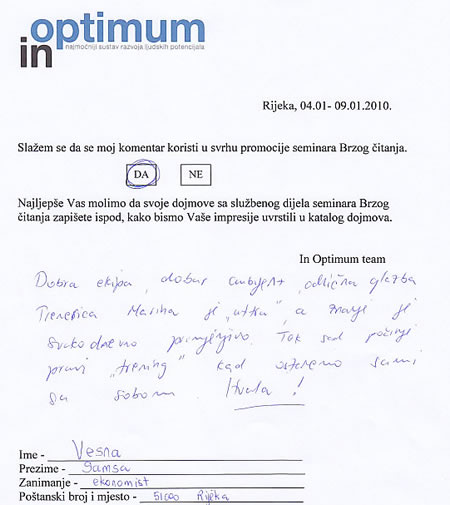 in optimum
najmoćniji sustav razvoja ljudskih potencijala
Rijeka, 04.01- 09.01.2010.
Slažem se da se moj komentar koristi u svrhu promocije seminara Brzog čitanja.
DA NE
Najljepše Vas molimo da svoje dojmove sa službenog dijela seminara Brzog
čitanja zapišete ispod, kako bismo Vaše impresije uvrstili u katalog dojmova.
In Optimum team
Dobra ekipa, dobar ambijent, odlična glazba
Trenerica Marina je, a znanje je
svakodnevno primjenjivo. Tek sad počinje
pravi „trening" kad ostanemo sami
sa sobom. Hvala!
Ime - Vesna
Prezime - Samsa
Zanimanje - ekonomist
Poštanski broj i mjesto - 51000 Rijeka